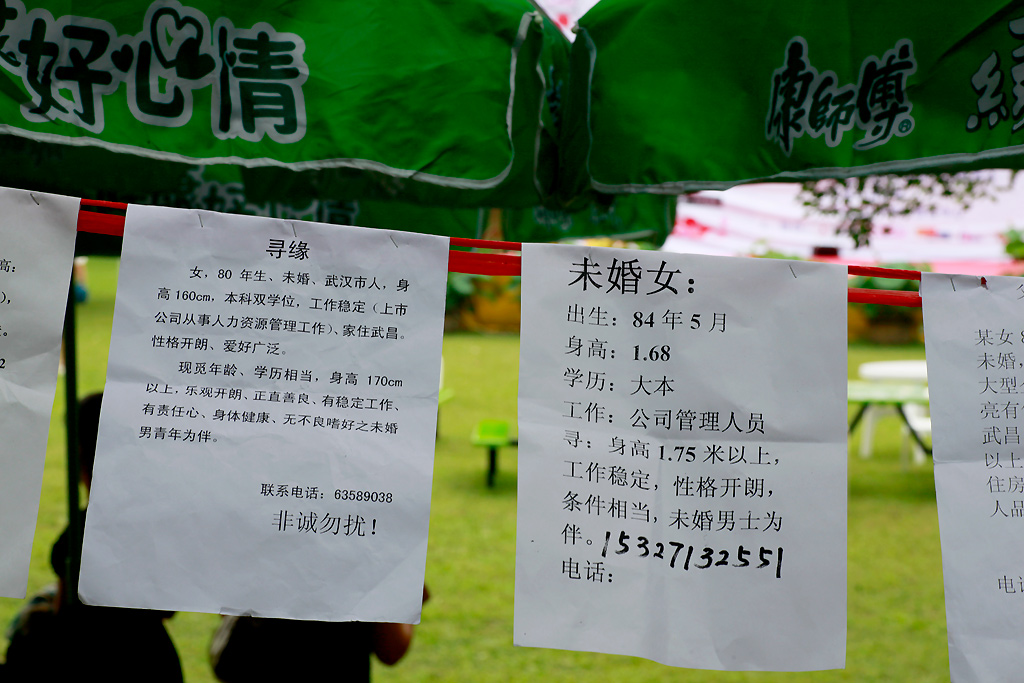 好心情
康師傅
®
绿
高:
),
2
寻缘
女，80 年生、未婚、武汉市人，身
高160cm，本科双学位，工作稳定（上市
公司从事人力资源管理工作）、家住武昌。
性格开朗、爱好广泛。
现觅年龄、学历相当，身高 170cm
以上，乐观开朗、正直善良、有稳定工作、
有责任心、身体健康、无不良嗜好之未婚
男青年为伴。
联系电话：63589038
非诚勿扰！
未婚女：
出生：84 年 5 月
身高：1.68
学历：大本
工作：公司管理人员
寻：身高 1.75 米以上，
工作稳定，性格开朗，
条件相当，未婚男士为
伴。15327132551
电话：
某女 8
未婚，
大型
亮有
武昌
以上
住房
人品
电话